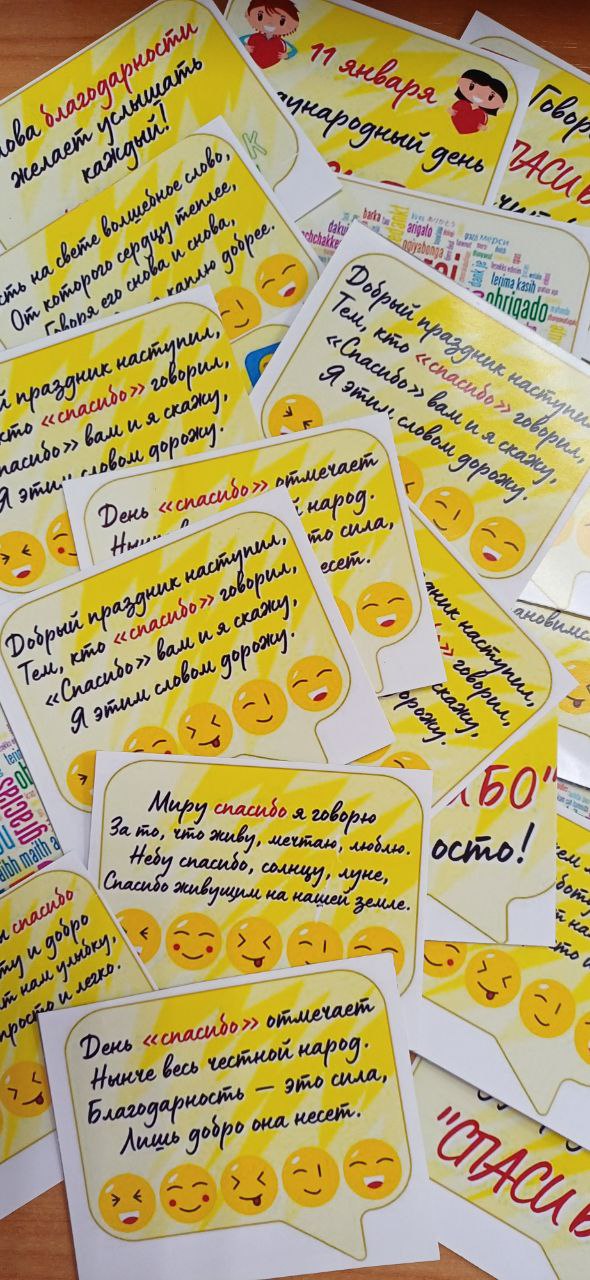 лова благодарности
желает услышать
каждый!
11 января
дународный день
Говори
СПАСИБ
сть на свете волшебное слово,
От которого сердцу теплее,
Говоря его снова и снова,
каплю добрее.
barka
arigato
ngiyabonga
terima kasih
obrigado
dank
мерси
й праздник наступил,
кто «спасибо» говорил,
пасибо» вам и я скажу,
Я этим словом дорожу.
Добрый праздник наступил
Тем, кто «спасибо» говорил,
«Спасибо» вам и я скажу,
Я этим словом дорожу.
День «спасибо» отмечает
й народ.
то сила,
есет.
Добрый праздник наступил,
Тем, кто «спасибо» говорил,
«Спасибо» вам и я скажу,
Я этим словом дорожу.
дник наступил,
говорил,
скажу,
орожу.
ановимс
БО"
осто!
Миру спасибо я говорю
За то, что живу, мечтаю, люблю.
Небу спасибо, солнцу, луне,
Спасибо живущим на нашей земле.
gracias
maith a
спасибо
ту и добро
т нам улыбку,
просто и легко.
День «спасибо» отмечает
Нынче весь честной народ.
Благодарность — это сила,
Лишь добро она несет.
"СПАСИБ